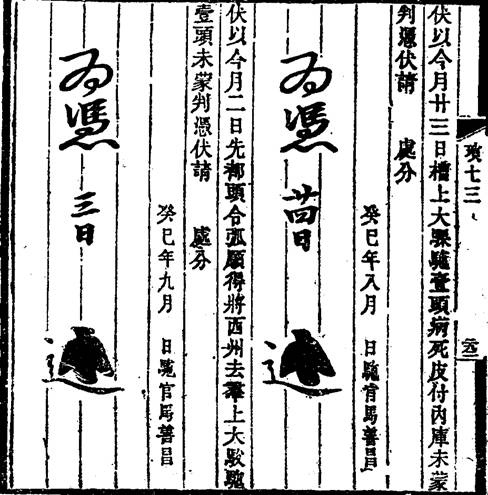 瑣七三
伏以今月廿三日槽上大騍駞壹頭病死皮付內庫未蒙
判憑伏請　處分
癸巳年八月　日駞官馬善昌
為憑　廿四日
伏以今月二日先都頭合弧願得將西州去群上大駮駞
壹頭未蒙判憑伏請　處分
癸巳年九月　日駞官馬善昌
為憑　三日